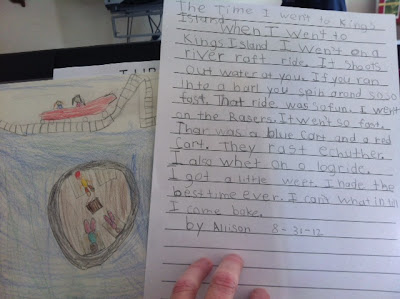 The Time I went to Kings
Island
When I went to
Kings Island I went on a
river raft ride. It shoets
out water at you. If you ran
into a barl you spin arond so so
fast. That ride was so fun. I went
on the Rasers. It went so fast.
Thar was a blue cart and a red
cart. They rast echuther.
I also whet on a logride.
I got a little wet. I hade the
best time ever. I can't what in till
I came bake.
by Allison 8-31-12